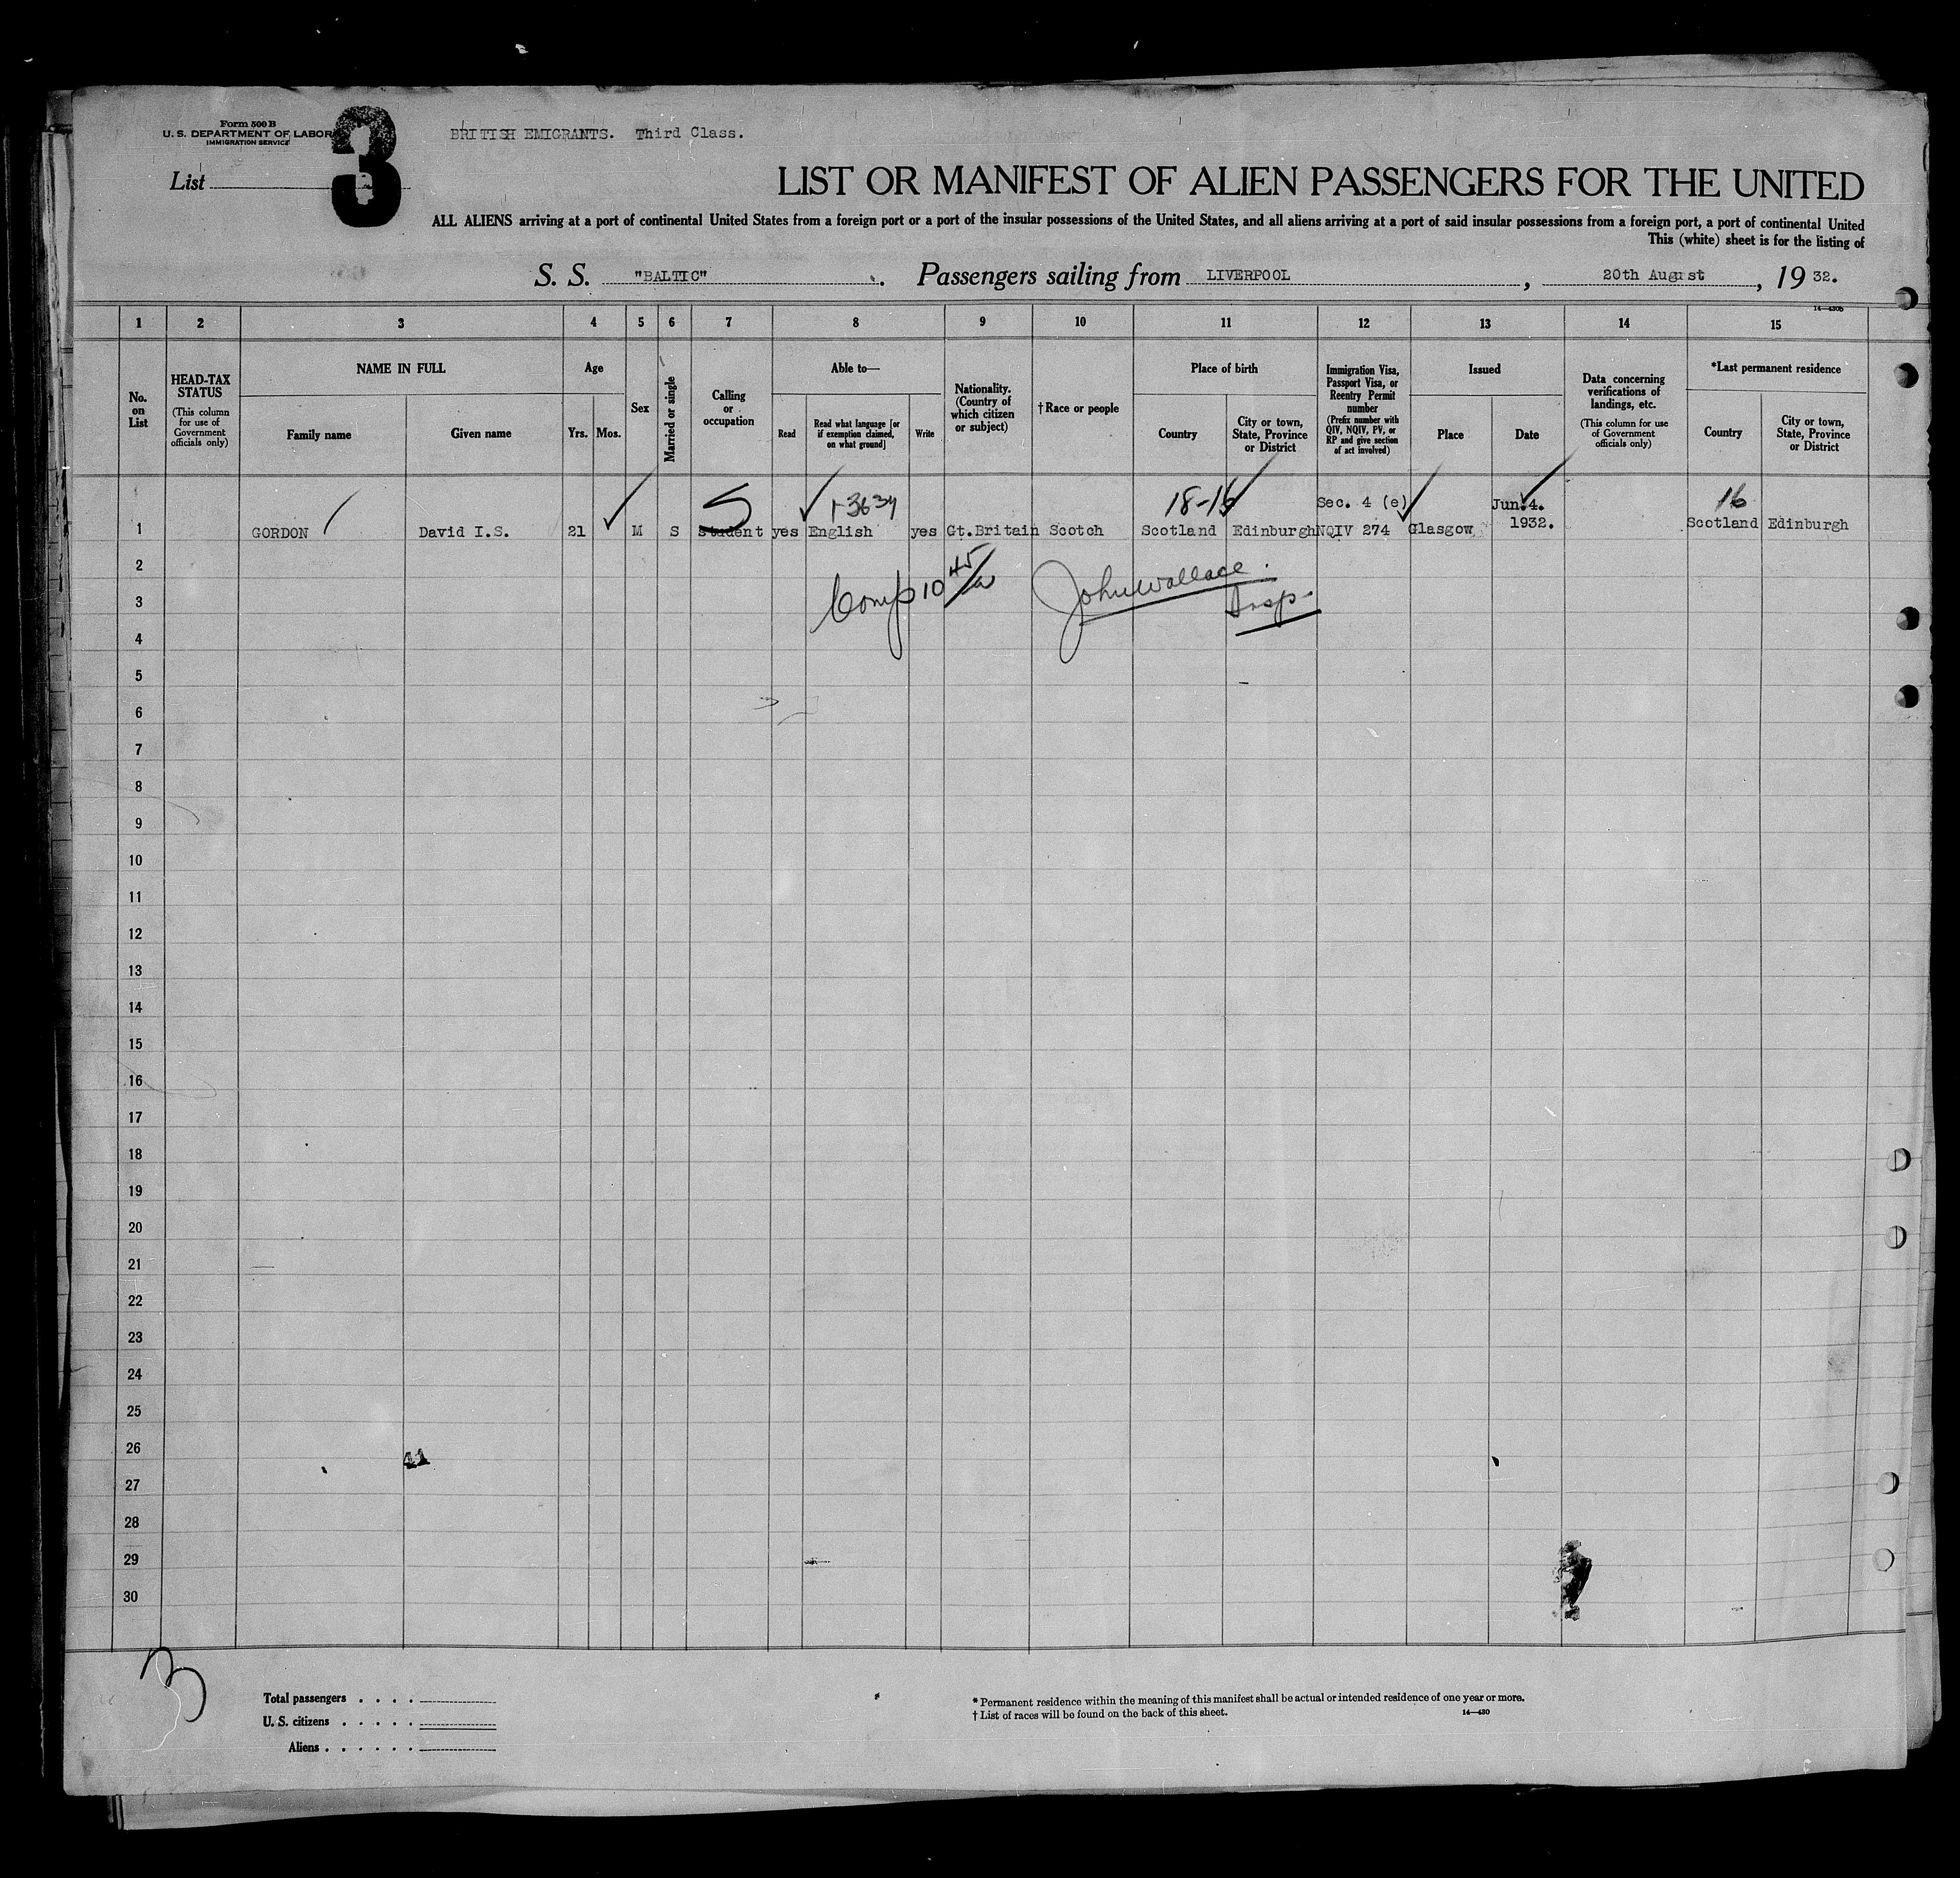 Form 500 B
U. S. DEPARTMENT OF LABOR
IMMIGRATION SERVICE
3
BRITISH EMIGRANTS. Third Class.
List
LIST OR MANIFEST OF ALIEN PASSENGERS FOR THE UNITED
ALL ALIENS arriving at a port of continental United States from a foreign port or a port of the insular possessions of the United States, and all aliens arriving at a port of said insular possessions from a foreign port, a port of continental United
This (white) sheet is for the listing of
S. S. "BALTIC". Passengers sailing from LIVERPOOL, 20th August, 1932.
14—430b
1 2 3 4 5 6 7 8 9 10 11 12 13 14 15
No. on List
HEAD-TAX STATUS
(This column for use of Government officials only)
NAME IN FULL
Family name
Given name
Age
Yrs.
Mos.
Sex
Married or single
Calling or occupation
Able to—
Read
Read what language [or if exemption claimed, on what ground]
Write
Nationality. (Country of which citizen or subject)
†Race or people
Place of birth
Country
City or town, State, Province or District
Immigration Visa, Passport Visa, or Reentry Permit number
(Prefix number with QIV, NQIV, PV, or RP and give section of act involved)
Issued
Place
Date
Data concerning verifications of landings, etc.
(This column for use of Government officials only)
*Last permanent residence
Country
City or town, State, Province or District
S 18-16 Sec. 4 (e) Jun.4. 16
1 GORDON David I.S. 21 M S student yes English yes Gt.Britain Scotch Scotland Edinburgh NQIV 274 Glasgow 1932. Scotland Edinburgh
2
Comp 10 45/a John Wallace.
3
Insp.
4
5
6
7
8
9
10
11
12
13
14
15
16
17
18
19
20
21
22
23
24
25
26
27
28
29
30
3
Total passengers . . . .
U. S. citizens . . . . .
Aliens . . . . . .
* Permanent residence within the meaning of this manifest shall be actual or intended residence of one year or more.
† List of races will be found on the back of this sheet.
14—430